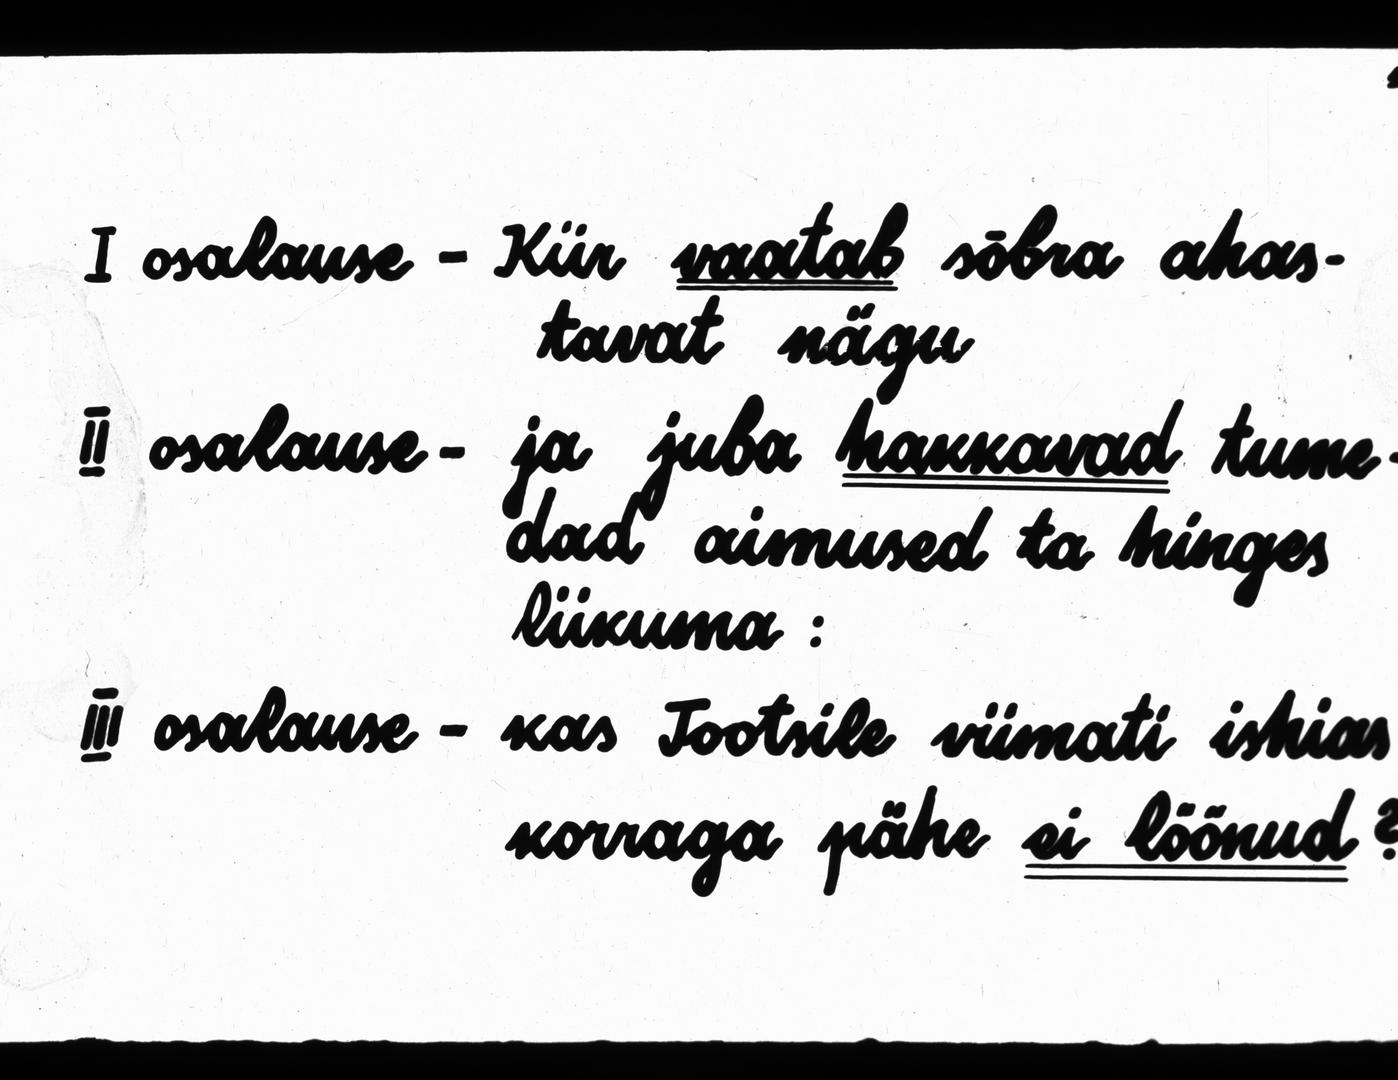 I osalause - Kiir vaatab sõbra ahas-
tavat nägu
II osalause - ja juba hakkavad tume-
dad aimused ta hinges
liikuma :
III osalause - kas Tootsile viimati ishias
korraga pähe ei löönud ?